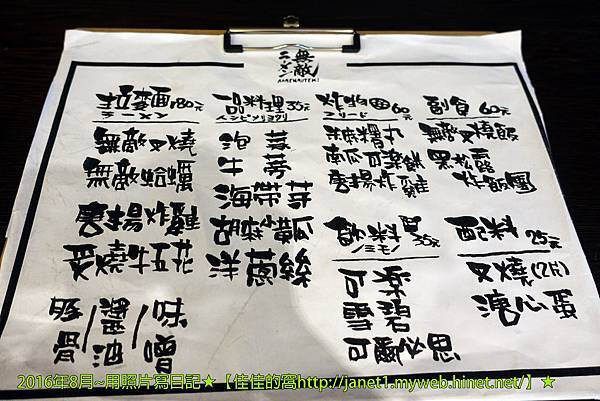 無敵
ラーメン
拉麵180元
ラーメン
無敵叉燒
無敵蛤蠣
唐揚炸雞
炙燒牛五花
豚骨/醬油/味噌
一品料理35元
泡菜
牛蒡
海帶芽
胡麻小黃瓜
洋蔥絲
炸物 60元
フリード
南瓜可樂餅
唐揚炸雞
副食 60元
無敵叉燒飯
黑松露
炸飯團
飲料 35元
ノミモノ
可樂
雪碧
可爾必思
配料 25元
叉燒(2片)
溏心蛋
2016年8月~用照片寫日記★【佳佳的窩http://janet1.myweb.hinet.net/】★